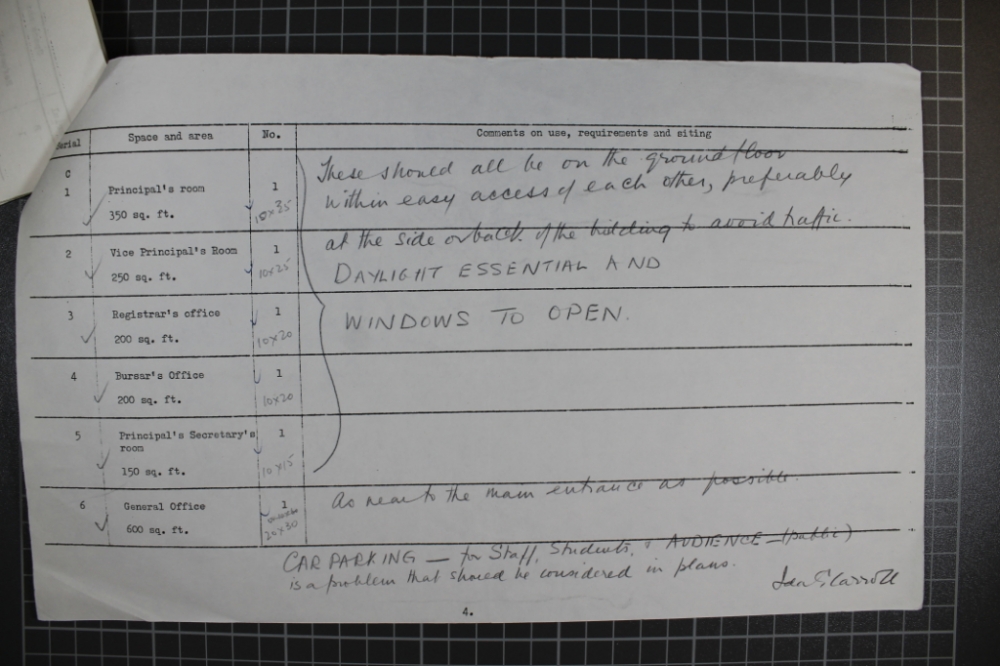 Serial Space and area No. Comments on use, requirements and siting
C
1 Principal's room 1
350 sq. ft. 10x35
These should all be on the ground floor
within easy access of each other, preferably
at the side or back of the building to avoid traffic.
2 Vice Principal's Room 1
250 sq. ft. 10x25
DAYLIGHT ESSENTIAL AND
3 Registrar's office 1
200 sq. ft. 10x20
WINDOWS TO OPEN.
4 Bursar's Office 1
200 sq. ft. 10x20
5 Principal's Secretary's 1
room
150 sq. ft. 10x15
6 General Office 1
600 sq. ft. 20x30
As near to the main entrance as possible.
CAR PARKING — for Staff, Students, & AUDIENCE — (public)
is a problem that should be considered in plans.
Carroll
4.